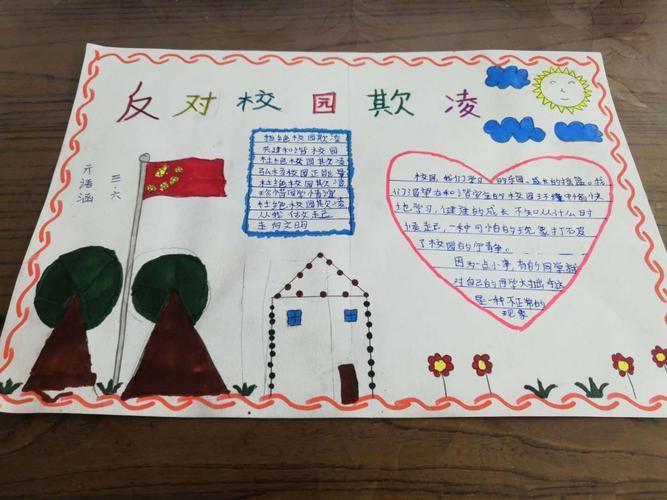 反对校园欺凌
三.六
亓浩涵
杜绝校园欺凌
共建和谐校园
杜绝校园欺凌
弘扬校园正能量
杜绝校园欺凌
珍惜同学情谊
杜绝校园欺凌
从我做起
走向文明
校园,我们学习的乐园、成长的摇篮。我
们渴望在和谐
学习,健康的成长。不知从什么时
候起,一种可怕的现象打破
了校园的宁静。
因为一点小事,有的同学就
对自己的同学大打出手,这
是一种不正常的
现象